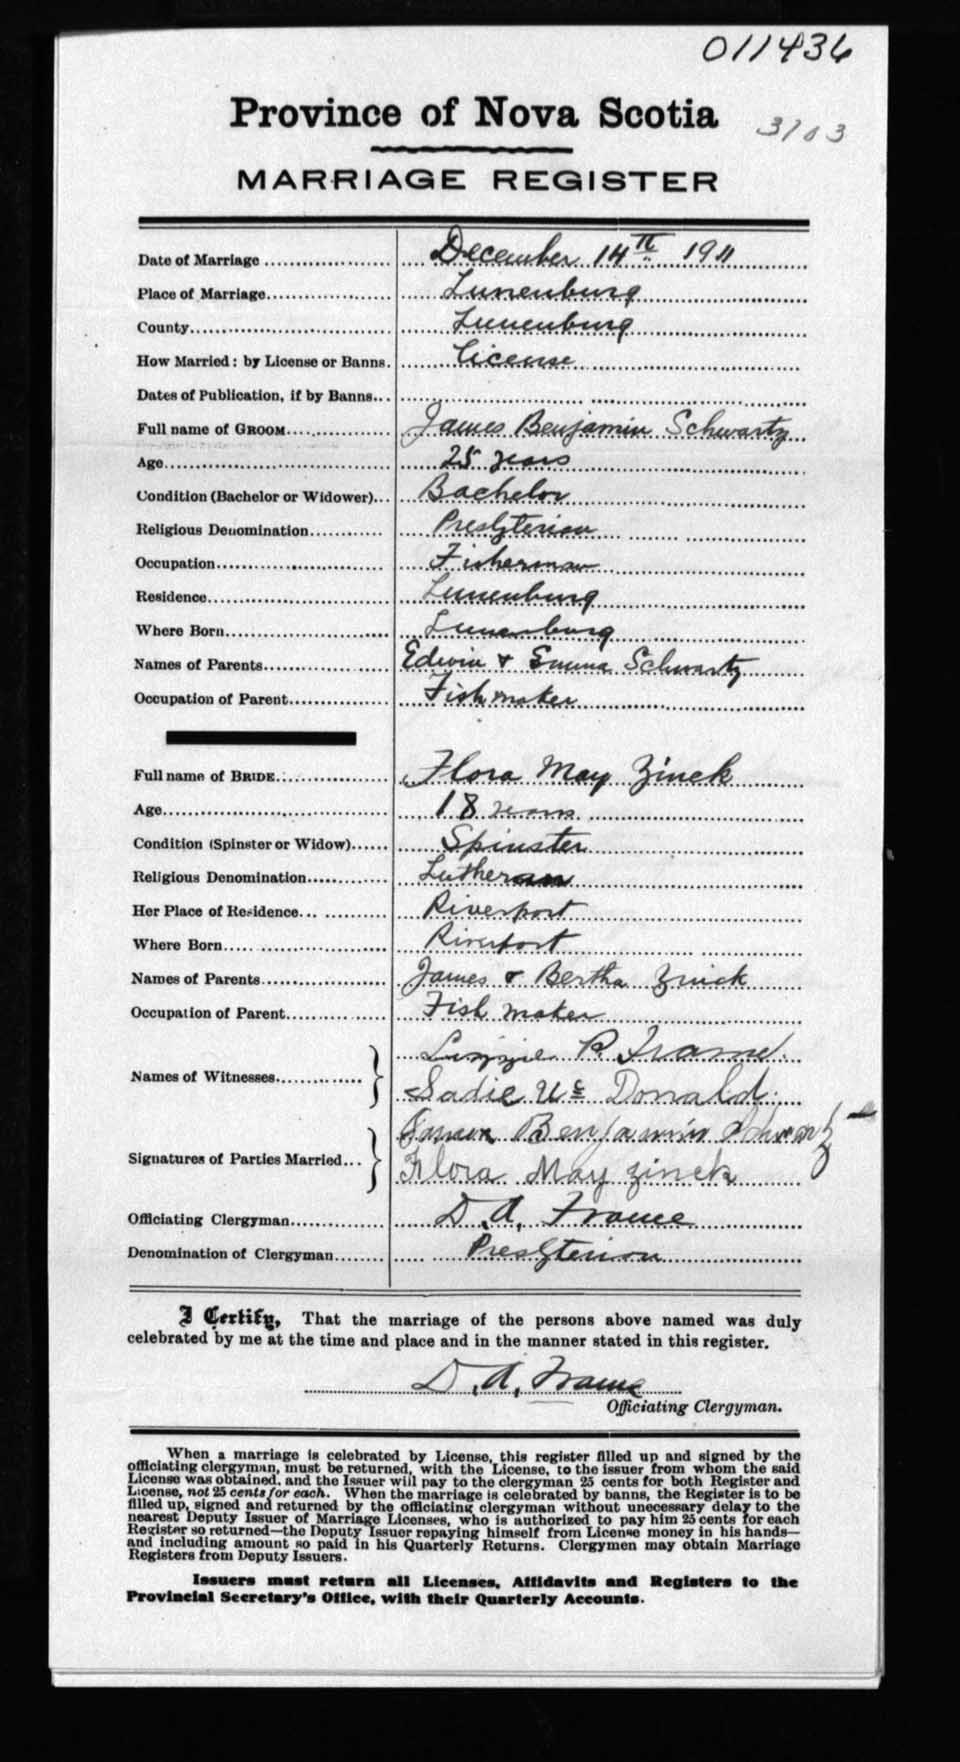 011436
Province of Nova Scotia
3103
MARRIAGE REGISTER
Date of Marriage December 14th 1911
Place of Marriage Lunenburg
County Lunenburg
How Married: by License or Banns. License
Dates of Publication, if by Banns
Full name of GROOM James Benjamin Schwartz
Age 25 years
Condition (Bachelor or Widower) Bachelor
Religious Denomination Presbyterian
Occupation Fisherman
Residence Lunenburg
Where Born Lunenburg
Names of Parents Edwin & Emma Schwartz
Occupation of Parent Fish maker
Full name of BRIDE Flora May Zinck
Age 18 years
Condition (Spinster or Widow) Spinster
Religious Denomination Lutheran
Her Place of Residence Riverport
Where Born Riverport
Names of Parents James & Bertha Zinck
Occupation of Parent Fish maker
Names of Witnesses Lizzie R. Frame
Sadie Mc Donald
Signatures of Parties Married Benjamin Schwartz
Flora May Zinck
Officiating Clergyman D. A. Frame
Denomination of Clergyman Presbyterian
I Certify, That the marriage of the persons above named was duly
celebrated by me at the time and place and in the manner stated in this register.
D. A. Frame
Officiating Clergyman.
When a marriage is celebrated by License, this register filled up and signed by the
officiating clergyman, must be returned, with the License, to the issuer from whom the said
License was obtained, and the Issuer will pay to the clergyman 25 cents for both Register and
License, not 25 cents for each. When the marriage is celebrated by banns, the Register is to be
filled up, signed and returned by the officiating clergyman without unnecessary delay to the
nearest Deputy Issuer of Marriage Licenses, who is authorized to pay him 25 cents for each
Register so returned—the Deputy Issuer repaying himself from License money in his hands—
and including amount so paid in his Quarterly Returns. Clergymen may obtain Marriage
Registers from Deputy Issuers.
Issuers must return all Licenses, Affidavits and Registers to the
Provincial Secretary's Office, with their Quarterly Accounts.